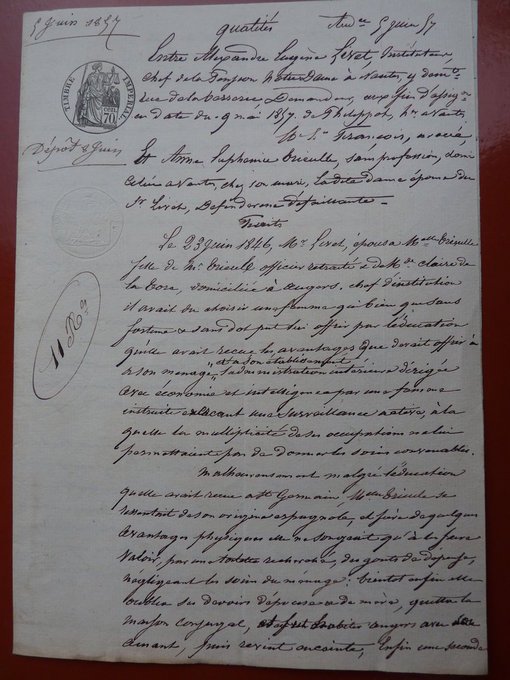 5 Juin 1857
qualités
Aud ce 5 Juin 57
TIMBRE IMPÉRIAL
70
Entre Alexandre Eugène Livet, Instituteur,
chef de la Pension Notre Dame à Nantes, y dem.t
rue de la Demandeur, aux fins d'assign.on
en date du 9 mai 1857, de Philippot, h.er à Nantes,
M.e S.t François, avoué,
Dépôt 8 Juin
Et Anne Euphémie sans profession, domi
ciliée à Nantes, chez son mari, la dite dame épouse du
S.r Livet, Défenderesse défaillante
Faits
Le 23 juin 1846, M.r Livet, épousa M.elle
fille de M.r officier retraité & de M.de Claire de
la domiciliée à Angers. chef d'institution
il avait dû choisir une femme qui bien que sans
fortune & sans dot put lui offrir par l'éducation
qu'elle avait reçue les avantages que devait offrir à
et à son établissement
à son ménage, l'administration intérieure dirigée
avec économie et intelligence par une femme
instruite exerçant une surveillance active, à la
quelle la multiplicité de ses occupations ne lui
permettaient pas de donner les soins convenables.
11 R.es
Malheureusement malgré l'éducation
quelle avait reçue à St Germain, M.elle se
ressentait de son origine espagnole, et fière de quelques
avantages physiques elle ne songeait qu'à les faire
valoir, par une toilette recherchée, des goûts de dépense,
négligeant les soins du ménage: bientôt enfin elle
oublia ses devoirs d'épouse et de mère, quitta la
maison conjugale, et fut habiter angers avec
amant, puis revint enceinte, Enfin une seconde